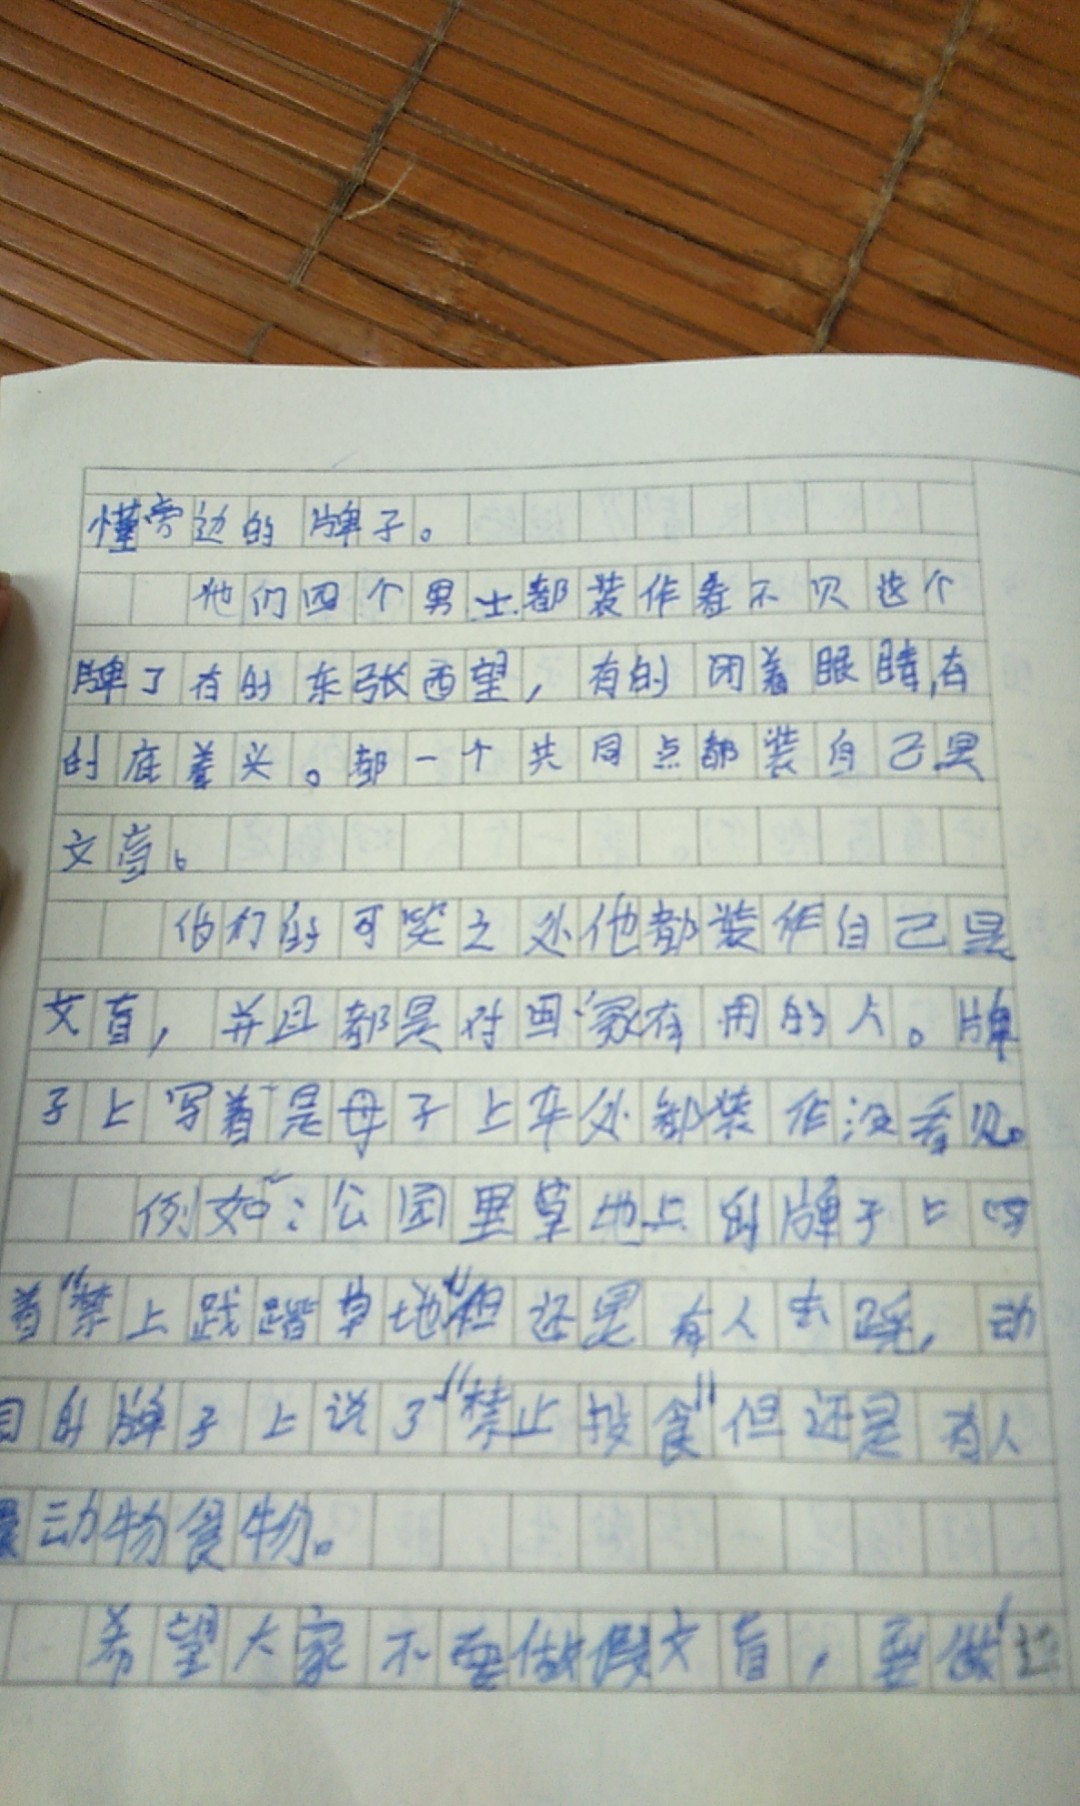 懂旁边的牌子。
他们四个男士都装作看不见这个
牌了有的东张西望，有的闭着眼睛，有
的底着头。都一个共同点都装自己是
文盲。
他们的可笑之处他都装作自己是
文盲，并且都是对国家有用的人。牌
子上写着"是母子上车处都装作没看见。
例如"：公园里草地上的牌子上写
着"禁上践踏草地"但还是有人去踩，动
的牌子上说了"禁止投食"但还是有人
动物食物。
希望大家不要做假文盲，要做